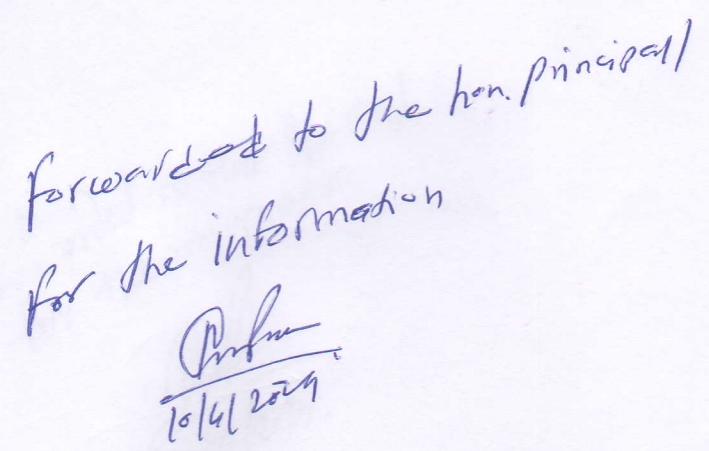 Forwarded to the hon. principal/
for the information
10/4/2029